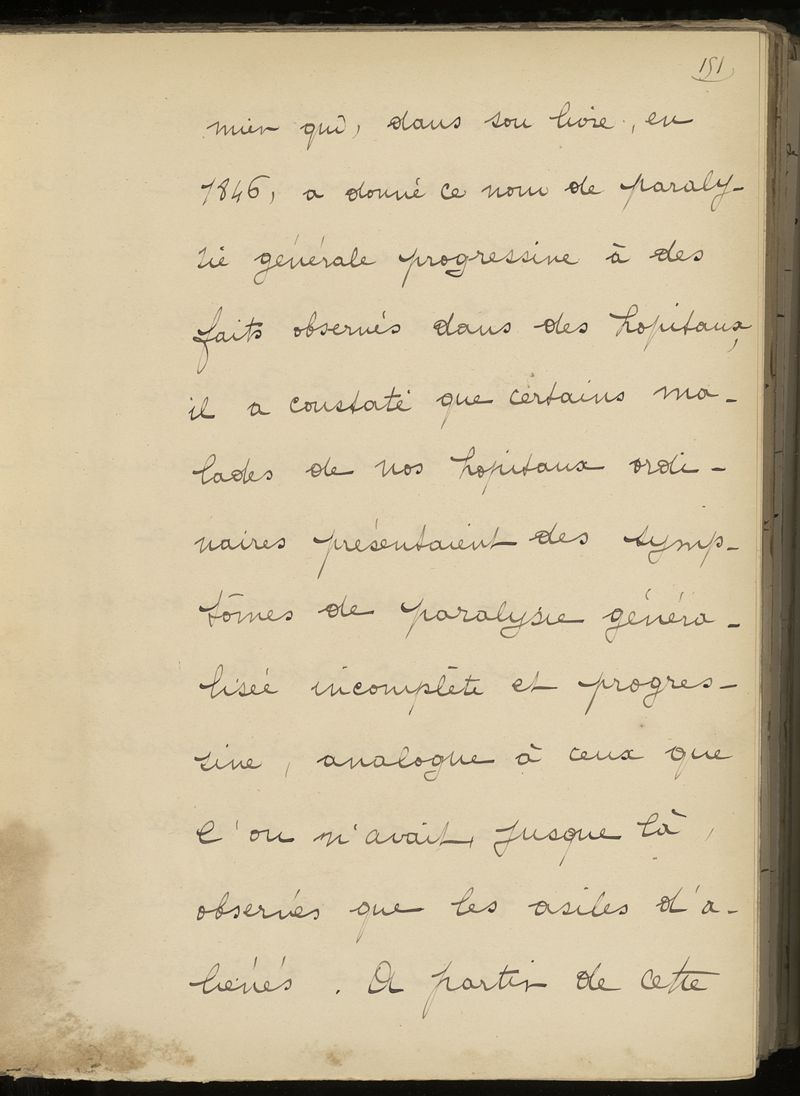 151
mier qui, dans son livre, en
1846, a donné ce nom de paraly-
sie générale progressive à des
faits observés dans des hopitaux,
il a constaté que certains ma-
lades de nos hopitaux ordi-
naires présentaient des symp-
tômes de paralysie généra-
lisée incomplète et progres-
sive, analogue à ceux que
l'on n'avait, jusque là,
observés que les asiles d'a-
liénés. A partir de cette